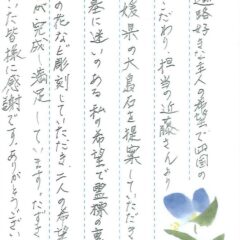 遍路好き主人の希望で四国の
こだわり、担当の近藤さんより
媛県の大島石を提案していただき
墓に迷いのある私の希望で霊標の裏
の花など彫刻していただき二人の希望
が完成し満足しています。たずさ
いた皆様に感謝です。ありがとうござい